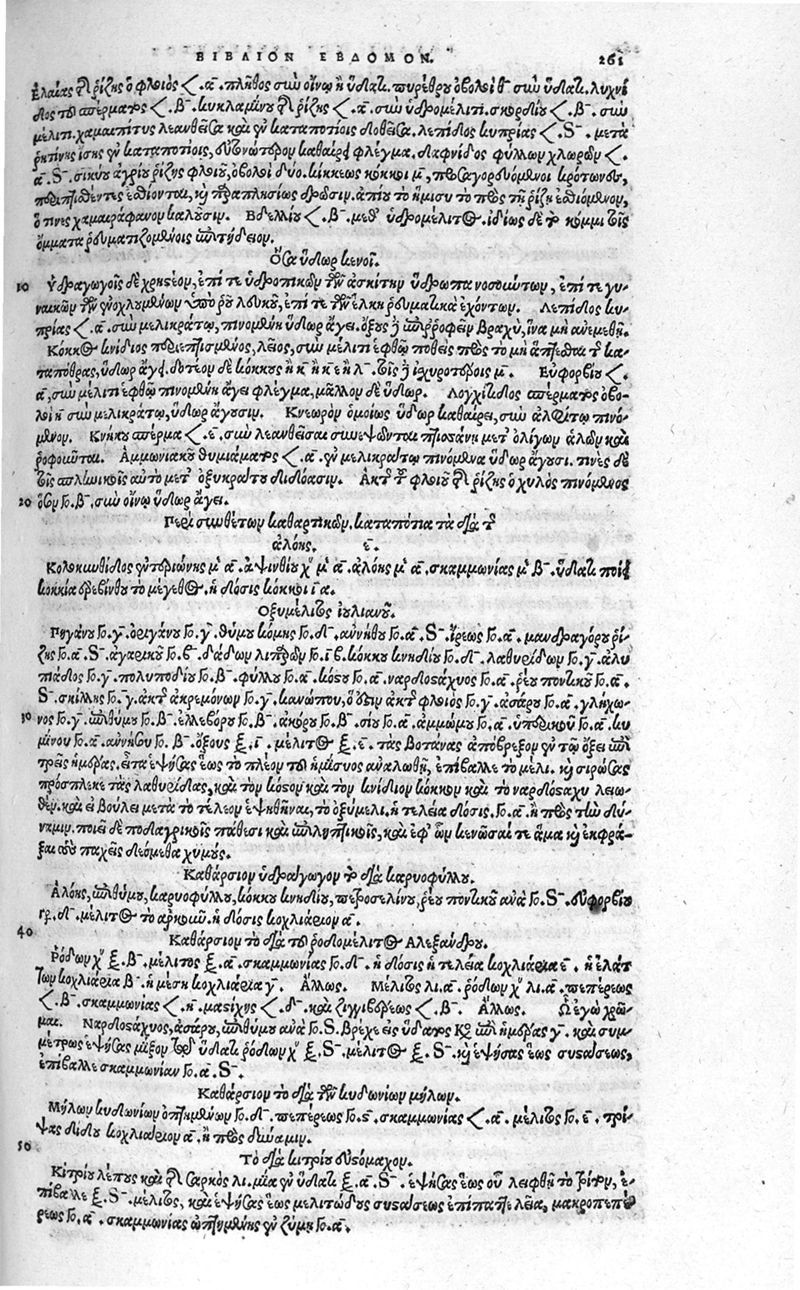 ΒΙΒΛΙΟΝ ΕΒΔΟΜΟΝ. 261
ἐλαίας τῆς ῥίζης ὁ φλοιὸς <.α. πλῆθος σὺν οἴνῳ ἢ ὕδατι. πυρέθρου ὀβολοὶ θ σὺν ὕδατι. λυχνί
δος τοῦ σπέρματος <.β. κυκλαμίνου τῆς ῥίζης <.α. σὺν ὑδρομέλιτι. σκορδίου <.β. σὺν
μέλιτι. χαμαιπίτυς λεανθεῖσα καὶ ἐν καταποτίοις δοθεῖσα. λεπίδος κυπρίας <.S. μετὰ
ῥητίνης ἴσης ἐν καταποτίοις, εὐτονώτερον καθαίρει φλέγμα. δαφνίδος φύλλων χλωρῶν <.
α.S. σικύου ἀγρίου ῥίζης φλοιοῦ, ὀβολοὶ δύο. κίκεως κόκκοι μ, προσαγορευόμενοι κρότωνες,
περιπισθέντες ἐσθίονται, καὶ παραπλησίως δρῶσιν. ἀπίου τὸ ἥμισυ τὸ πρὸς τῇ ῥίζῃ ἐσθιόμενον,
ὅ τινες χαμαιράφανον καλοῦσιν. Βδελλίου <.β. μεθ' ὑδρομέλιτος. ἰδίως δὲ τὸ κόμμι τοῖς
ὄμματα ῥευματιζομένοις ἐπιτήδειον.
Ὅσα ὕδωρ κενοῖ.
10 Ὑδραγωγοῖς δὲ χρηστέον, ἐπί τε ὑδροπικῶν τῶν ἀσκίτην ὕδρωπα νοσούντων, ἐπί τε γυ-
ναικῶν τῶν ἐνοχλουμένων ὑπὸ ῥοῦ λευκοῦ, ἐπί τε τῶν ἕλκη ῥευματικὰ ἐχόντων. Λεπίδος κυ-
πρίας <.α. σὺν μελικράτῳ, πινομένη ὕδωρ ἄγει. ὄξους δὲ ἐπιρροφεῖν βραχὺ, ἵνα μὴ ἀνεμεθῇ.
Κόκκος κνίδιος περιεπτισμένος, λεῖος, σὺν μέλιτι ἑφθῷ ποθεὶς πρὸς τὸ μὴ ἅπτεσθαι τῆς κα-
ταπόθρας, ὕδωρ ἄγει. δοτέον δὲ κόκκους ἢ κ ἢ κε ἢ λ. τοῖς δὲ ἰσχυροτέροις μ. Εὐφορβίου <.
α, σὺν μέλιτι ἑφθῷ πινομένη ἄγει φλέγμα, μᾶλλον δὲ ὕδωρ. Λογχίτιδος σπέρματος ὀβο-
λοὶ κ σὺν μελικράτῳ, ὕδωρ ἄγουσιν. Κνέωρον ὁμοίως ὕδωρ καθαίρει, σὺν ἀλφίτῳ πινό-
μενον. Κνήκου σπέρμα <.ε. σὺν λεανθεῖσαι συνεψῶνται πτισσάνῃ μετ' ὀλίγων ἁλῶν καὶ
ῥοφοῦνται. Ἀμμωνιακοῦ θυμιάματος <.α. ἐν μελικράτῳ πινόμενα ὕδωρ ἄγουσι. τινὲς δὲ
τοῖς σπληνικοῖς αὐτὸ μετ' ὀξυκράτου διδόασιν. Ἀκτῆς τοῦ φλοιοῦ τῆς ῥίζης ὁ χυλὸς πινόμενος
20 ὅσον Γο.β, σὺν οἴνῳ ὕδωρ ἄγει.
Περὶ συνθέτων καθαρτικῶν, καταπότια τὰ διὰ τῆς
ἀλόης. ε.
Κολοκυνθίδος ἐντεριώνης μ α. ἀψινθίου χ μ α. ἀλόης μ α. σκαμμωνίας μ β. ὕδατι ποίει
κοκκία ὀρεβίνθου τὸ μέγεθος. ἡ δόσις κόκκοι ια.
Ὀξυμέλιτος Ἰουλιανοῦ.
Πηγάνου Γο.γ. ὀριγάνου Γο.γ. θύμου κόμης Γο.δ. ἀνήθου Γο.α.S. ἴρεως Γο.α. μανδραγόρου ῥί-
ζης Γο.α.S. ἀγαρικοῦ Γο.β. δᾴδων λιπαρῶν Γο.ιβ. κόκκου κνιδίου Γο.δ. λαθυρίδων Γο.γ. ἀλυ
πιάδος Γο.γ. πολυποδίου Γο.β. φύλλου Γο.α. κόστου Γο.α. ναρδοστάχυος Γο.α. ῥέου ποντικοῦ Γο.α.
S. σκίλλης Γο.γ. ἀκτῆς ἀκρεμόνων Γο.γ. κανώπου, ὅ ἐστιν ἀκτῆς φλοιὸς Γο.γ. ἀσάρου Γο.α. γλήχω-
30 νος Γο.γ. ἐπιθύμου Γο.β. ἑλλεβόρου Γο.β. ἀκόρου Γο.β. σίου Γο.α. ἀμμώμου Γο.α. ὑπερικοῦ Γο.α. κυ
μίνου Γο.α. ἀννήσου Γο.β. ὄξους ξ.ι. μέλιτος ξ.ε. τὰς βοτάνας ἀπόβρεξον ἐν τῷ ὄξει ἐπὶ
τρεῖς ἡμέρας. εἶτα ἑψήσας ἕως τὸ πλέον τοῦ ἡμίσους ἀναλωθῇ, ἐπίβαλλε τὸ μέλι. καὶ σιρώσας
πρόσπλεκε τὰς λαθυρίδας, καὶ τὸν κόστον καὶ τὸν κνίδιον κόκκον καὶ τὸ ναρδόσταχυ λειω-
θέν. καὶ εἰ βούλει μετὰ τὸ τέλεον ἑψηθῆναι, τὸ ὀξύμελι. ἡ τελεία δόσις, Γο.α. ἢ πρὸς τὴν δύ-
ναμιν. ποιεῖ δὲ ποδαγρικοῖς πάθεσι καὶ ἐπιληπτικοῖς, καὶ ἐφ' ὧν κενῶσαί τε ἅμα καὶ ἐκφρά-
ξαι τοὺς παχεῖς δεόμεθα χυμούς.
Καθάρσιον ὑδραγωγὸν τὸ διὰ καρυοφύλλου.
Ἀλόης, ἐπιθύμου, καρυοφύλλου, κόκκου κνιδίου, πετροσελίνου, ῥέου ποντικοῦ ἀνὰ Γο.S. εὐφορβίου
γρ.δ. μέλιτος τὸ ἀρκοῦν. ἡ δόσις κοχλιάριον α.
40 Καθάρσιον τὸ διὰ τοῦ ῥοδομέλιτος Ἀλεξάνδρου.
Ῥόδων χ ξ.β. μέλιτος ξ.α. σκαμμωνίας Γο.δ. ἡ δόσις ἡ τελεία κοχλιάρια ε. ἡ ἐλάτ
των κοχλιάρια β. ἡ μέση κοχλιάρια γ. Ἄλλως. Μέλιτος λι.α. ῥόδων χ λι.α. πεπέρεως
<.β. σκαμμωνίας <.η. μαστίχης <.δ. καὶ ζιγγιβέρεως <.β. Ἄλλως. Ὧι ἐγὼ χρῶ-
μαι. Ναρδοστάχυος, ἀσάρου, ἐπιθύμου ἀνὰ Γο.S. βρέχε εἰς ὕδατος ἐπὶ ἡμέρας γ. καὶ συμ-
μέτρως ἑψήσας μῖξον τῷ ὕδατι ῥόδων χ ξ.S. μέλιτος ξ.S. καὶ ἑψήσας ἕως συστάσεως,
ἐπίβαλλε σκαμμωνίαν Γο.α.S.
Καθάρσιον τὸ διὰ τῶν κυδωνίων μήλων.
Μήλων κυδωνίων ὀπτημένων Γο.δ. πεπέρεως Γο.ς. σκαμμωνίας <.α. μέλιτος Γο.ε. τρί-
ψας δίδου κοχλιάριον α. ἢ πρὸς δύναμιν.
50 Τὸ διὰ κιτρίου εὐστόμαχον.
Κιτρίου λέπους καὶ τῆς σαρκὸς λι.μία ἐν ὕδατι ξ.α.S. ἑψήσας ἕως οὗ λειφθῇ τὸ τρίτον, ἐ-
πίβαλλε ξ.S. μέλιτος, καὶ ἑψήσας ἕως μελιτώδους συστάσεως ἐπίπαττε λεῖα, μακροπεπέ
ρεως Γο.α. σκαμμωνίας ὠπτημένης ἐν ζύμῃ Γο.α.